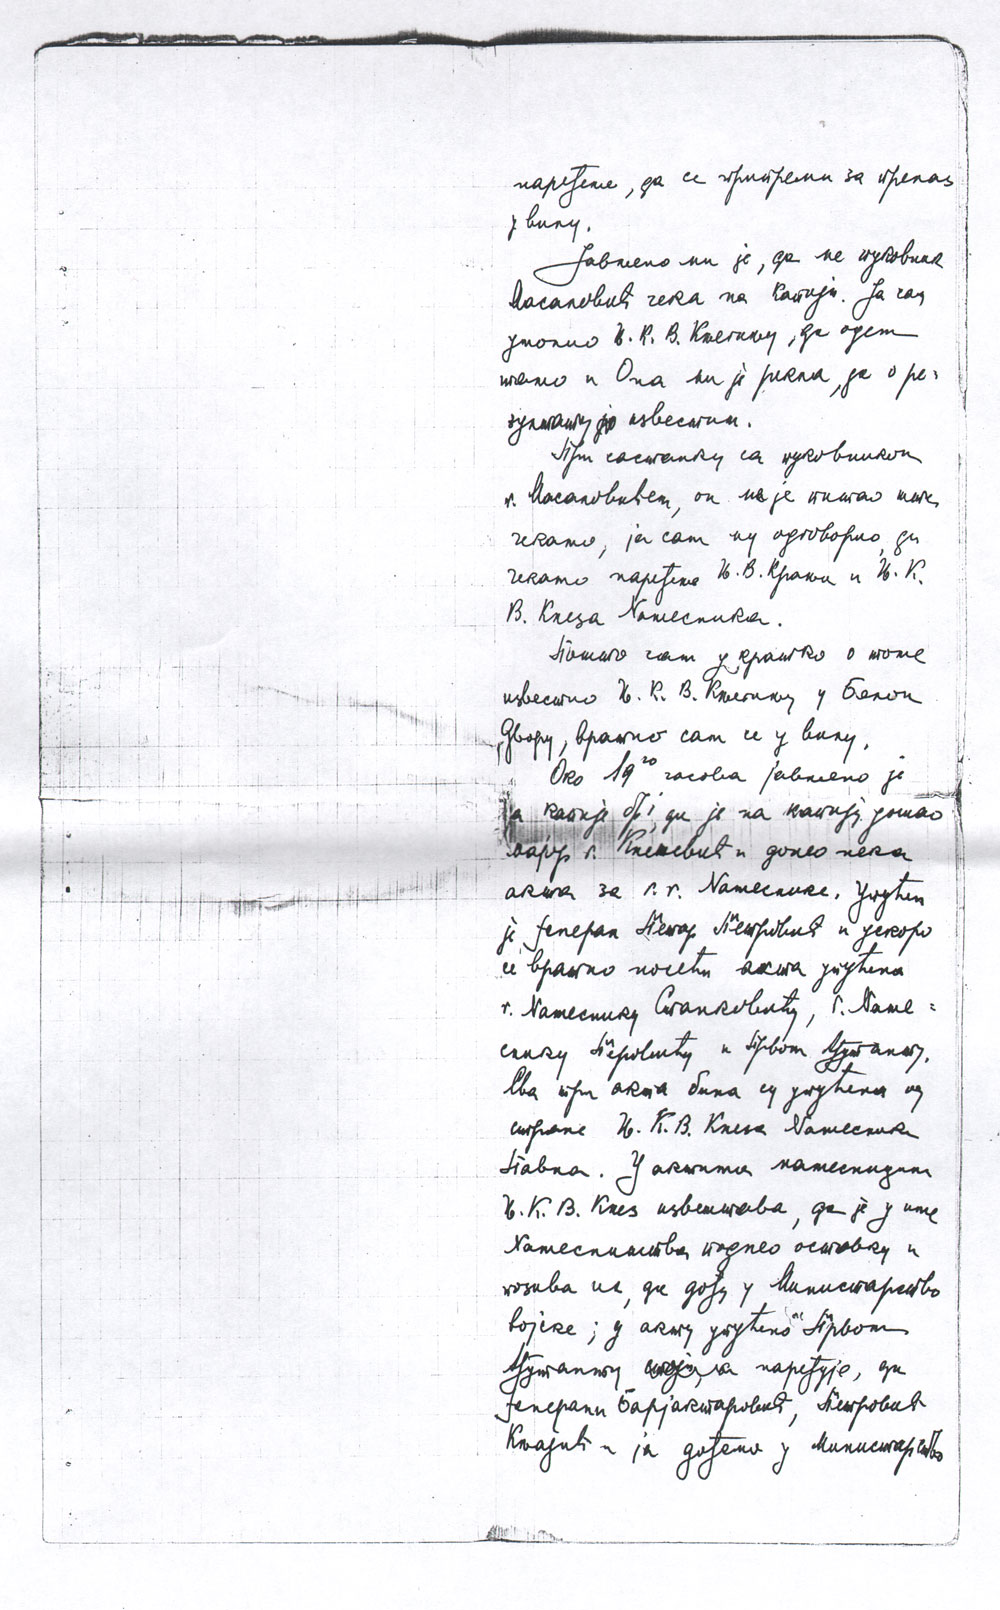 наређење, да се припреми за прелаз
у вилу.
Јављено ми је, да ме пуковник
Масаловић чека на капији. Ја сам
умолио Њ. К. В. Кнегињу, да одем
тамо и Она ми је рекла, да о ре=
зултату је известим.
При састанку са пуковником
г. Масаловићем, он ме је питао шта
чекамо, ја сам му одговорио, да
чекамо наређење Њ. В. Краља и Њ. К.
В. Кнеза Намесника.
Пошто сам укратко о томе
известио Њ. К. В. Кнегињу у Белом
Двору, вратио сам се у вилу.
Око 19²⁰ часова јављено је
са капије бр. 1, да је на капију дошао
мајор г. Кнежевић и донео нека
акта за г. г. Намеснике. Упућен
је ђенерал Петар Петровић и ускоро
се вратио носећи акта упућена
г. Намеснику Станковићу, г. Наме=
снику Перовићу и Првом Ађутанту.
Сва три акта била су упућена од
стране Њ. К. В. Кнеза Намесника
Павла. У актима намесницима
Њ. К. В. Кнез извештава, да је у име
Намесништва поднео оставку и
позива их, да дођу у Министарство
војске; у акту упућено Првом
Ађутанту наређује, да
ђенерали Барјактаровић, Петровић
Кнајић и ја дођемо у Министарство